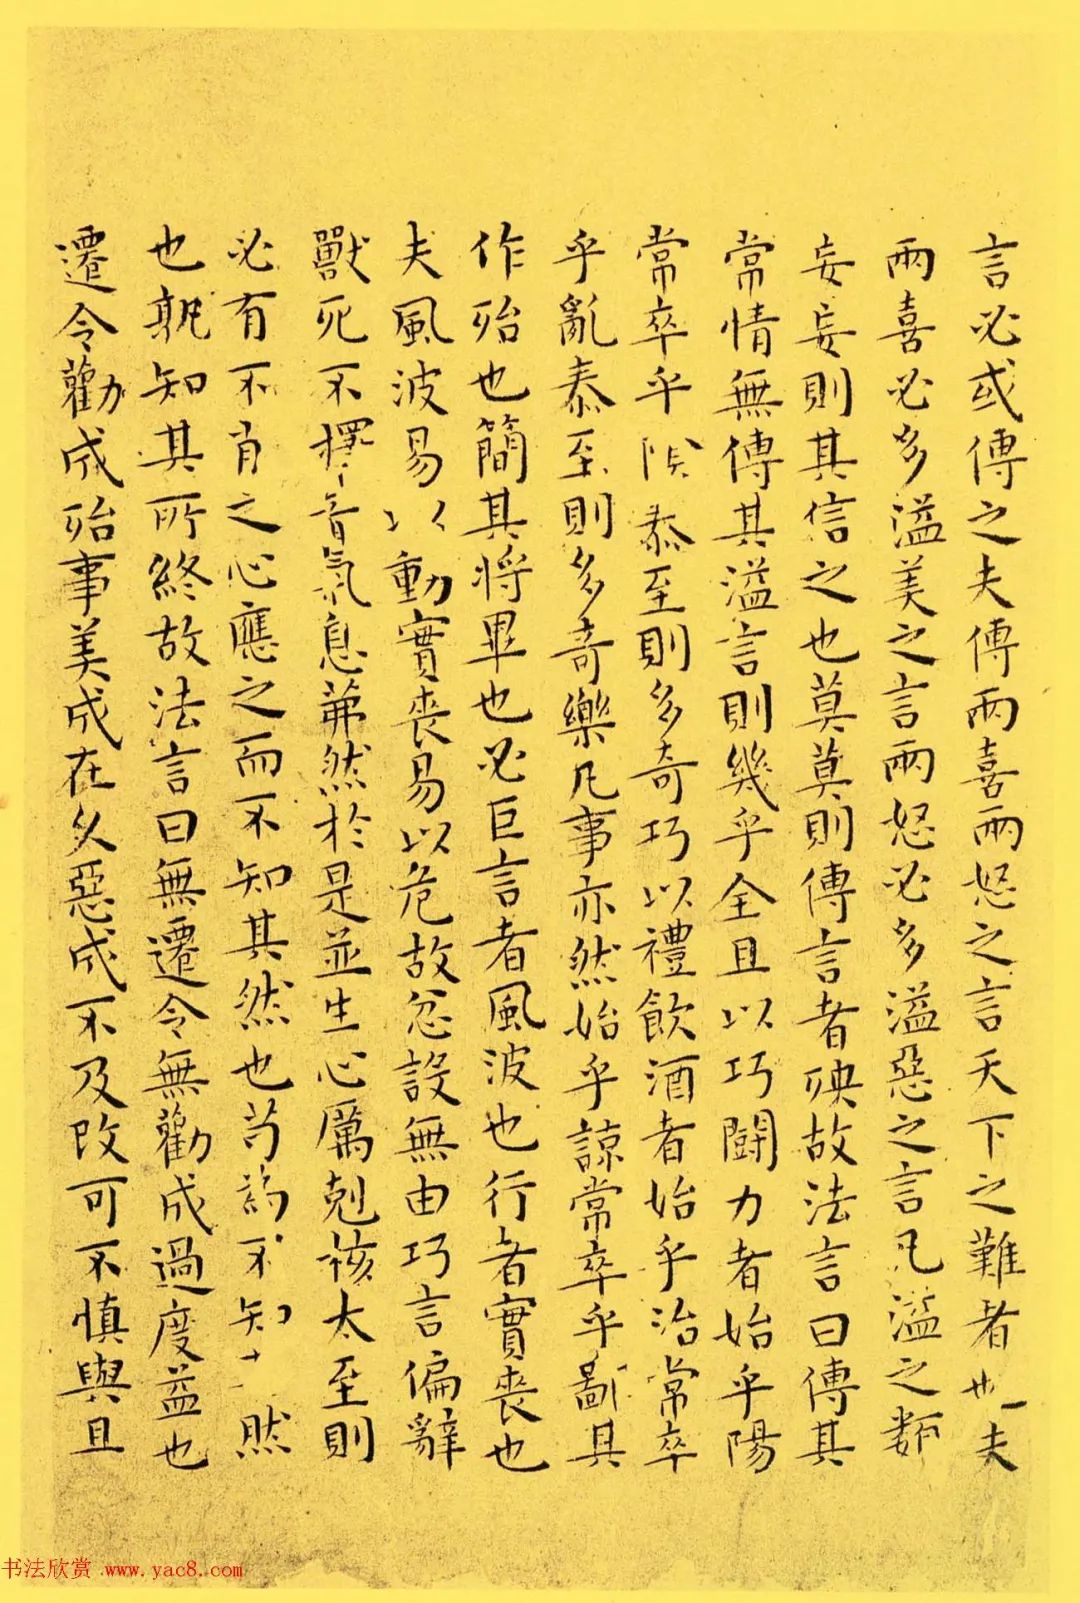 言必或傳之夫傳兩喜兩怒之言天下之難者也夫
兩喜必多溢美之言兩怒必多溢惡之言凡溢之類
妄妄則其信之也莫莫則傳言者殃故法言曰傳其
常情無傳其溢言則幾乎全且以巧鬪力者始乎陽
常卒乎陰泰至則多奇巧以禮飲酒者始乎治常卒
乎亂泰至則多奇樂凡事亦然始乎諒常卒乎鄙其
作殆也簡其將畢也必巨言者風波也行者實喪也
夫風波易以動實喪易以危故忿設無由巧言偏辭
獸死不擇音氣息茀然於是並生心厲剋核太至則
必有不肖之心應之而不知其然也苟為不知然
也孰知其所終故法言曰無遷令無勸成過度益也
遷令勸成殆事美成在久惡成不及改可不慎與且
书法欣赏 www.yac8.com